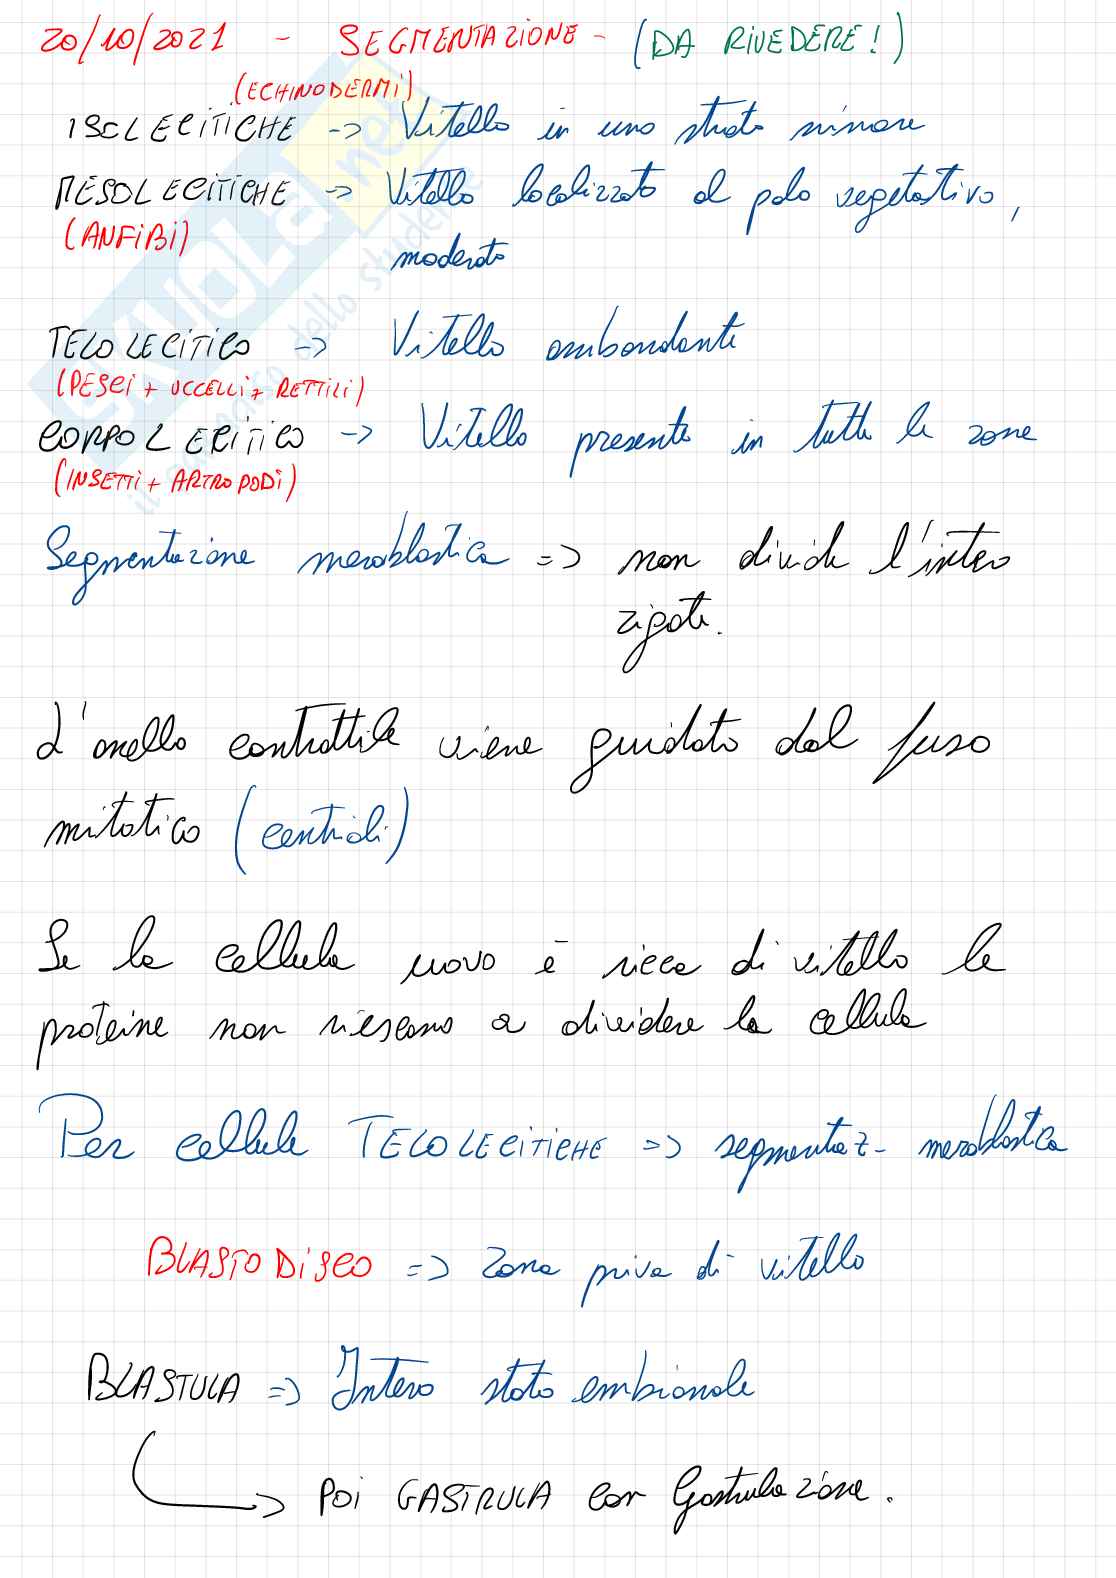 20/10/2021 - SEGMENTAZIONE - (DA RIVEDERE!)
(ECHINODERMI)
ISOLECITICHE -> Vitello in uno strato minore
MESOLECITICHE -> Vitello localizzato al polo vegetativo,
(ANFIBI)
moderato
TELOLECITICO -> Vitello ambondante
(PESCI + UCCELLI + RETTILI)
CORPOLECITICO -> Vitello presente in tutte le zone
(INSETTI + ARTROPODI)
Segmentazione meroblastica => non divide l'intero
zigote.
L'anello contrattile viene guidato dal fuso
mitotico (centrioli)
Se la cellula uovo è ricca di vitello le
proteine non riescono a dividere la cellula
Per cellule TELOLECITICHE => segmentaz- meroblastica
BLASTODISCO => Zona priva di vitello
BLASTULA => Intero stato embionale
-> POI GASTRULA con Gastrulazione.
SKUOLA.net
il paradiso dello studente